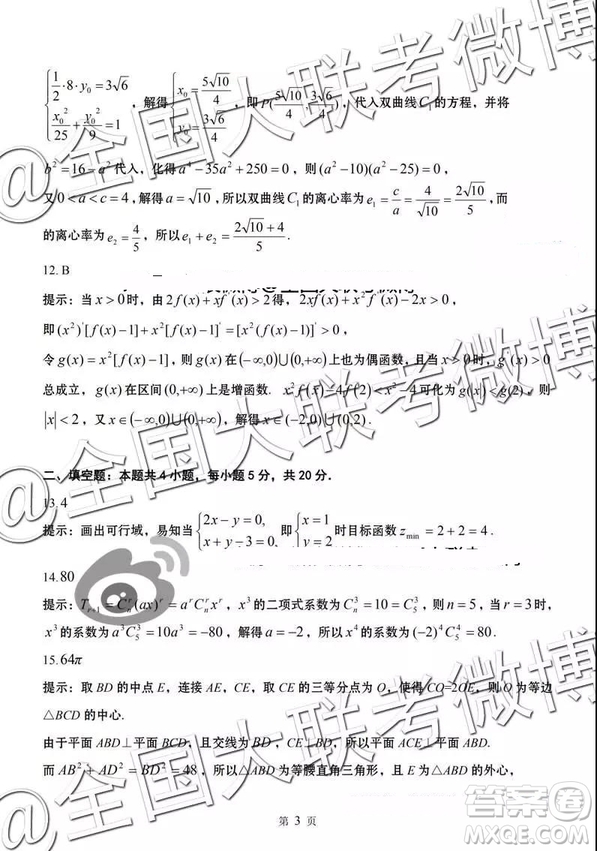 { 1/2·8·y₀=3√6 , x₀²/25+y₀²/9=1 , 解得 { x₀=5√10/4 , y₀=3√6/4 , 即 P(5√10/4, 3√6/4), 代入双曲线 C₁ 的方程，并将
b²=16−a² 代入，化得 a⁴−35a²+250=0，则 (a²−10)(a²−25)=0，
又 0<a<c=4，解得 a=√10，所以双曲线 C₁ 的离心率为 e₁=c/a=4/√10=2√10/5，而
的离心率为 e₂=4/5，所以 e₁+e₂=(2√10+4)/5．
12. B
提示：当 x>0 时，由 2f(x)+xf′(x)>2 得，2xf(x)+x²f′(x)−2x>0，
即 (x²)′[f(x)−1]+x²[f(x)−1]′=[x²f(x)]′>0，
令 g(x)=x²[f(x)−1]，则 g(x) 在 (−∞,0)∪(0,+∞) 上也为偶函数，且当 x>0 时，g′(x)>0
总成立，g(x) 在区间 (0,+∞) 上是增函数．x²f(x)−4f(2)<x²−4 可化为 g(x)<g(2)，则
|x|<2，又 x∈(−∞,0)∪(0,+∞)，解得 x∈(−2,0)∪(0,2)．
二、填空题：本题共4小题，每小题5分，共20分．
13.4
提示：画出可行域，易知当 { 2x−y=0, x+y−3=0, 即 { x=1 y=2 时目标函数 z_min=2+2=4．
14.80
提示：T_{r+1}=C_n^r(ax)^r=a^r C_n^r x^r，x³ 的二项式系数为 C_n^3=10=C_5^3，则 n=5，当 r=3 时，
x³ 的系数为 a³C_5^3=10a³=−80，解得 a=−2，所以 x⁴ 的系数为 (−2)⁴C_5^4=80．
15.64π
提示：取 BD 的中点 E，连接 AE，CE，取 CE 的三等分点为 O，使得 CO=2OE，则 O 为等边
△BCD 的中心．
由于平面 ABD⊥平面 BCD，且交线为 BD，CE⊥BD，所以平面 ACE⊥平面 ABD．
而 AB²+AD²=BD²=48，所以△ABD 为等腰直角三角形，且 E 为△ABD 的外心，
第 3 页
@全国大联考微博
@全国大联考微博
@全国大联考微博
答案圈
MXQE.COM